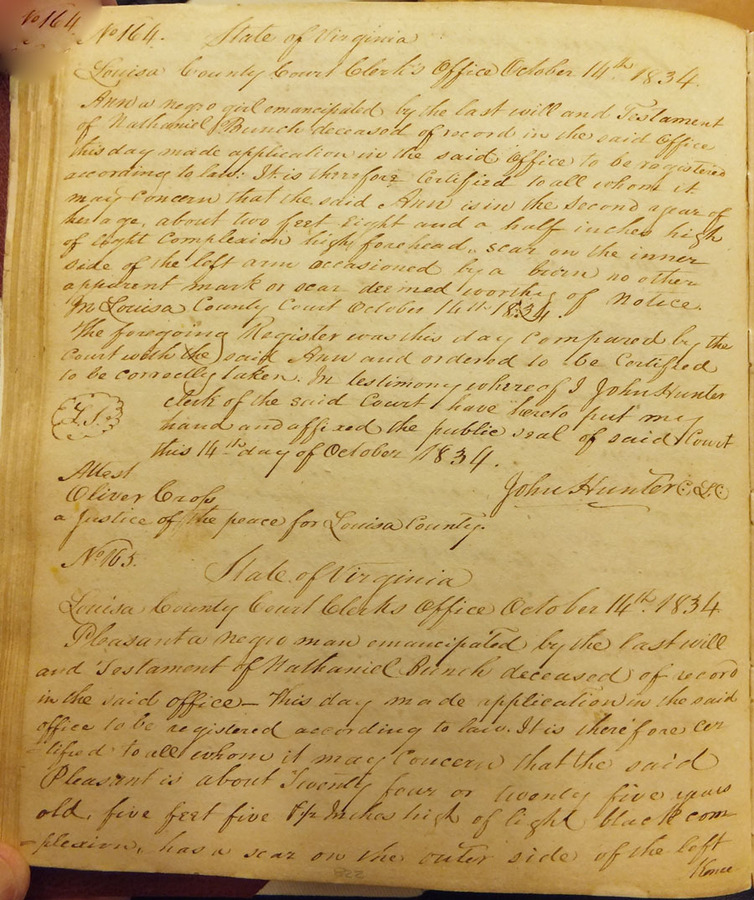 No 164
No 164. State of Virginia
Louisa County Court Clerk's Office October 14th 1834.
Ann a negro girl emancipated by the last will and Testament
of Nathaniel Bunch deceased of record in the said Office
this day made application in the said Office to be registered
according to law: It is therefore Certified to all whom it
may Concern that the said Ann is in the second year of
her age, about two feet Eight and a half inches high
of light Complexion high forehead, scar on the inner
side of the left arm occasioned by a burn no other
apparent mark or scar deemed worthy of notice.
In Louisa County Court October 14th 1834.
The foregoing Register was this day Compared by the
Court with the said Ann and ordered to be Certified
to be correctly taken. In testimony whereof I John Hunter
clerk of the said Court have hereto put my
L.S.
hand and affixed the public seal of said Court
this 14th day of October 1834.
John Hunter C.L.C.
Attest
Oliver Cross
a Justice of the peace for Louisa County.
No 165.
State of Virginia
Louisa County Court Clerks Office October 14th. 1834
Pleasant a negro man emancipated by the last will
and Testament of Nathaniel Bunch deceased of record
in the said office — this day made application in the said
office to be registered according to law. It is therefore cer
-tified to all whom it may Concern that the said
Pleasant is about Twenty four or twenty five years
old, five feet five 1/2 Inches high of light black com
-plexion, has a scar on the outer side of the left
Knee